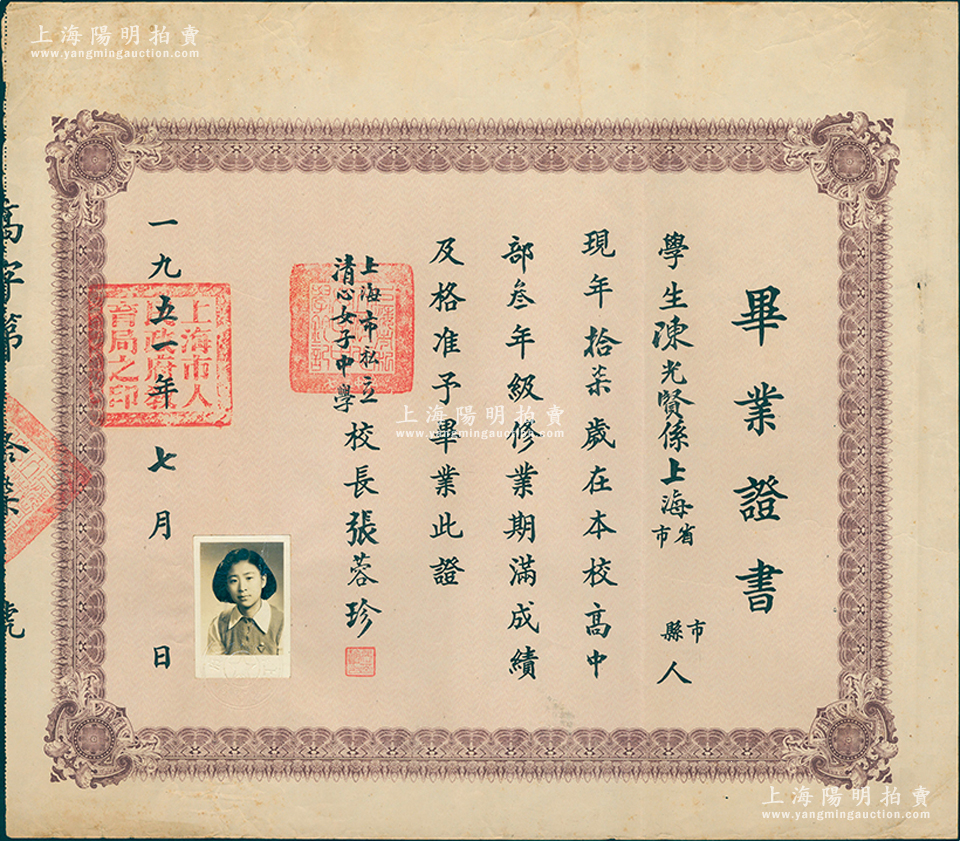 畢業證書
學生陳光賢係上海省市 市縣人
現年拾柒歲在本校高中
部叁年級修業期滿成績
及格准予畢業此證
上海市私立
清心女子中學
校長張蓉珍
一九五一年七月 日
上海市人
民政府教
育局之印
高字第
號
上海陽明拍賣
www.yangmingauction.com
上海陽明拍賣
www.yangmingauction.com
上海陽明拍賣
www.yangmingauction.com